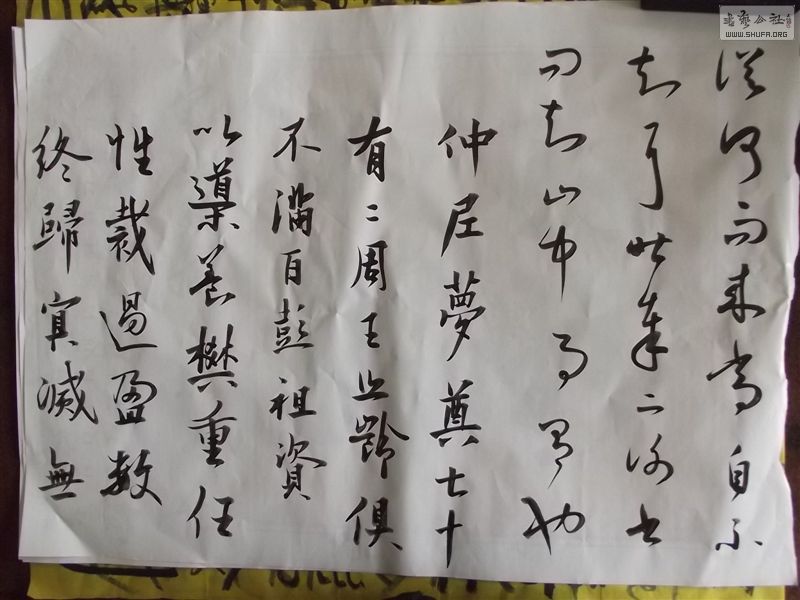 書藝公社
WWW.SHUFA.ORG
從何而来常自不
知耳此年二謝書
而知山中
仲尼夢奠七十
有二周王九齡俱
不滿百彭祖資
以導養樊重任
性裁過盈數
終歸冥滅無